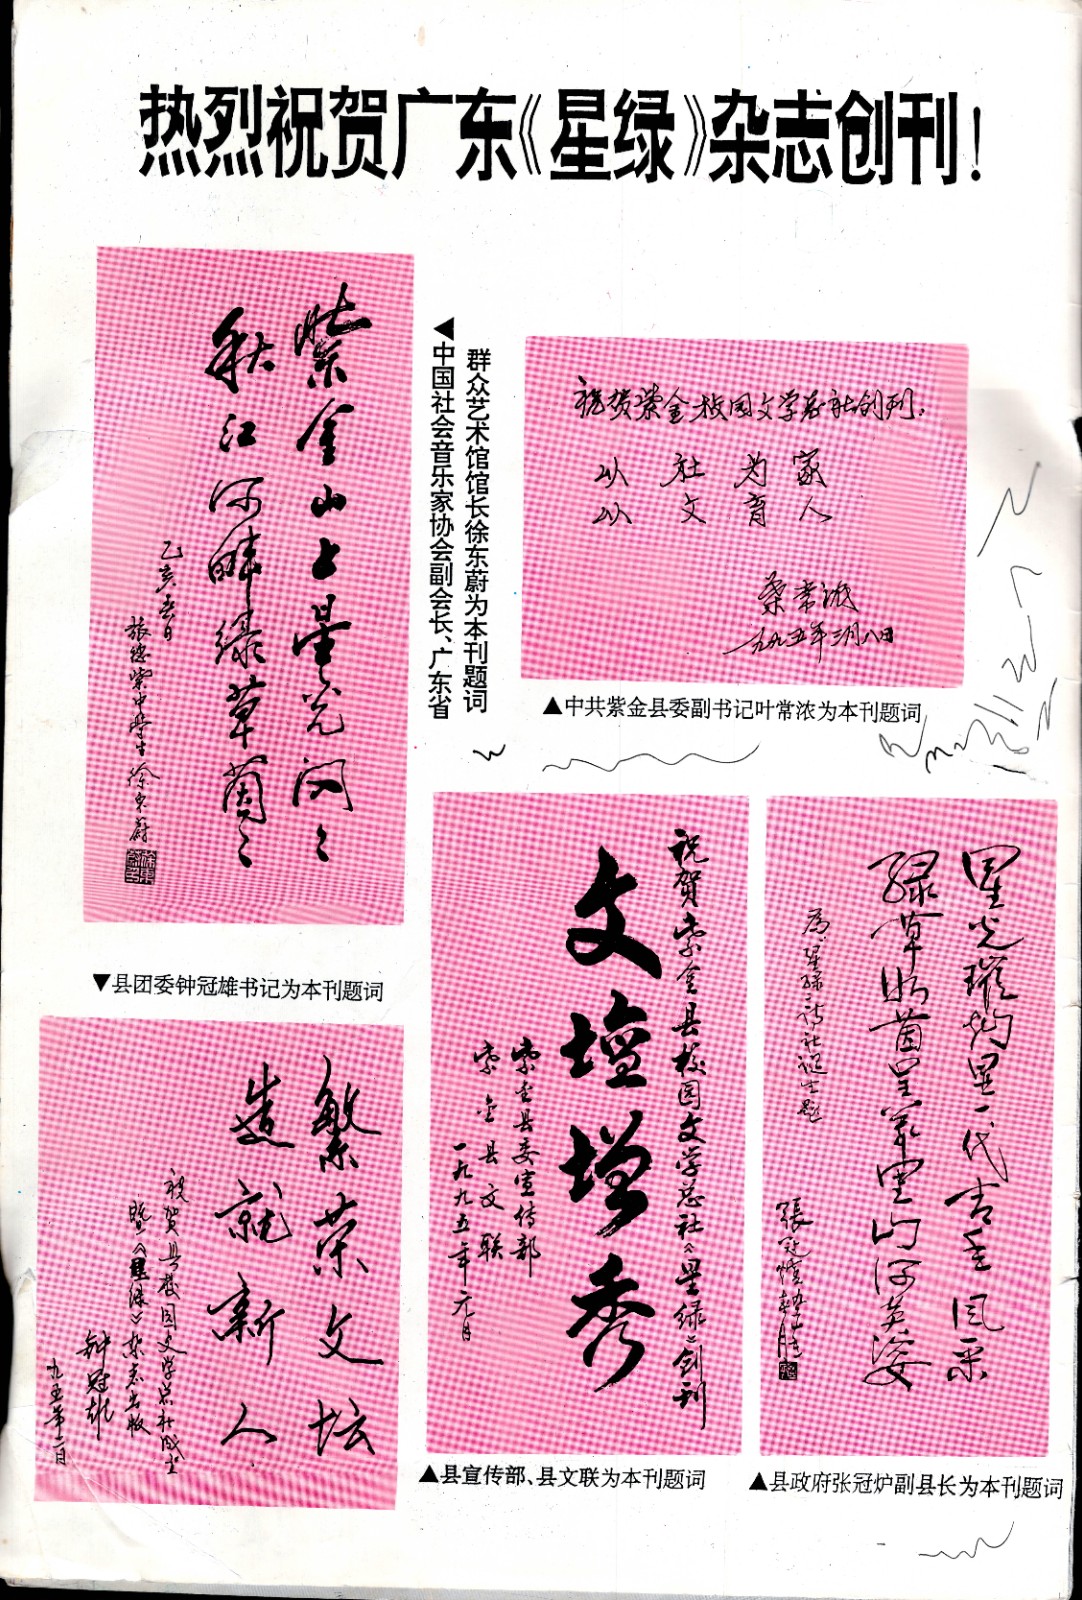 热烈祝贺广东《星绿》杂志创刊!
紫金山上星光闪々
秋江河畔绿草茵々
乙亥春日
旅德紫中学生徐东蔚
◀中国社会音乐家协会副会长、广东省
群众艺术馆馆长徐东蔚为本刊题词
祝贺紫金校园文学总社创刊:
以社为家
以文育人
叶常浓
一九九五年三月八日
▲中共紫金县委副书记叶常浓为本刊题词
▼县团委钟冠雄书记为本刊题词
繁荣文坛
造就新人
祝贺县校园文学总社成立
暨《星绿》杂志出版
钟冠雄
九五年二日
祝贺紫金县校园文学总社《星绿》创刊
文坛增秀
紫金县委宣传部
紫金县文联
一九九五年元月
▲县宣传部、县文联为本刊题词
星光璀灿显一代古邑风采
绿草如茵呈万里山河英姿
为星绿诗社诞生题
▲县政府张冠炉副县长为本刊题词